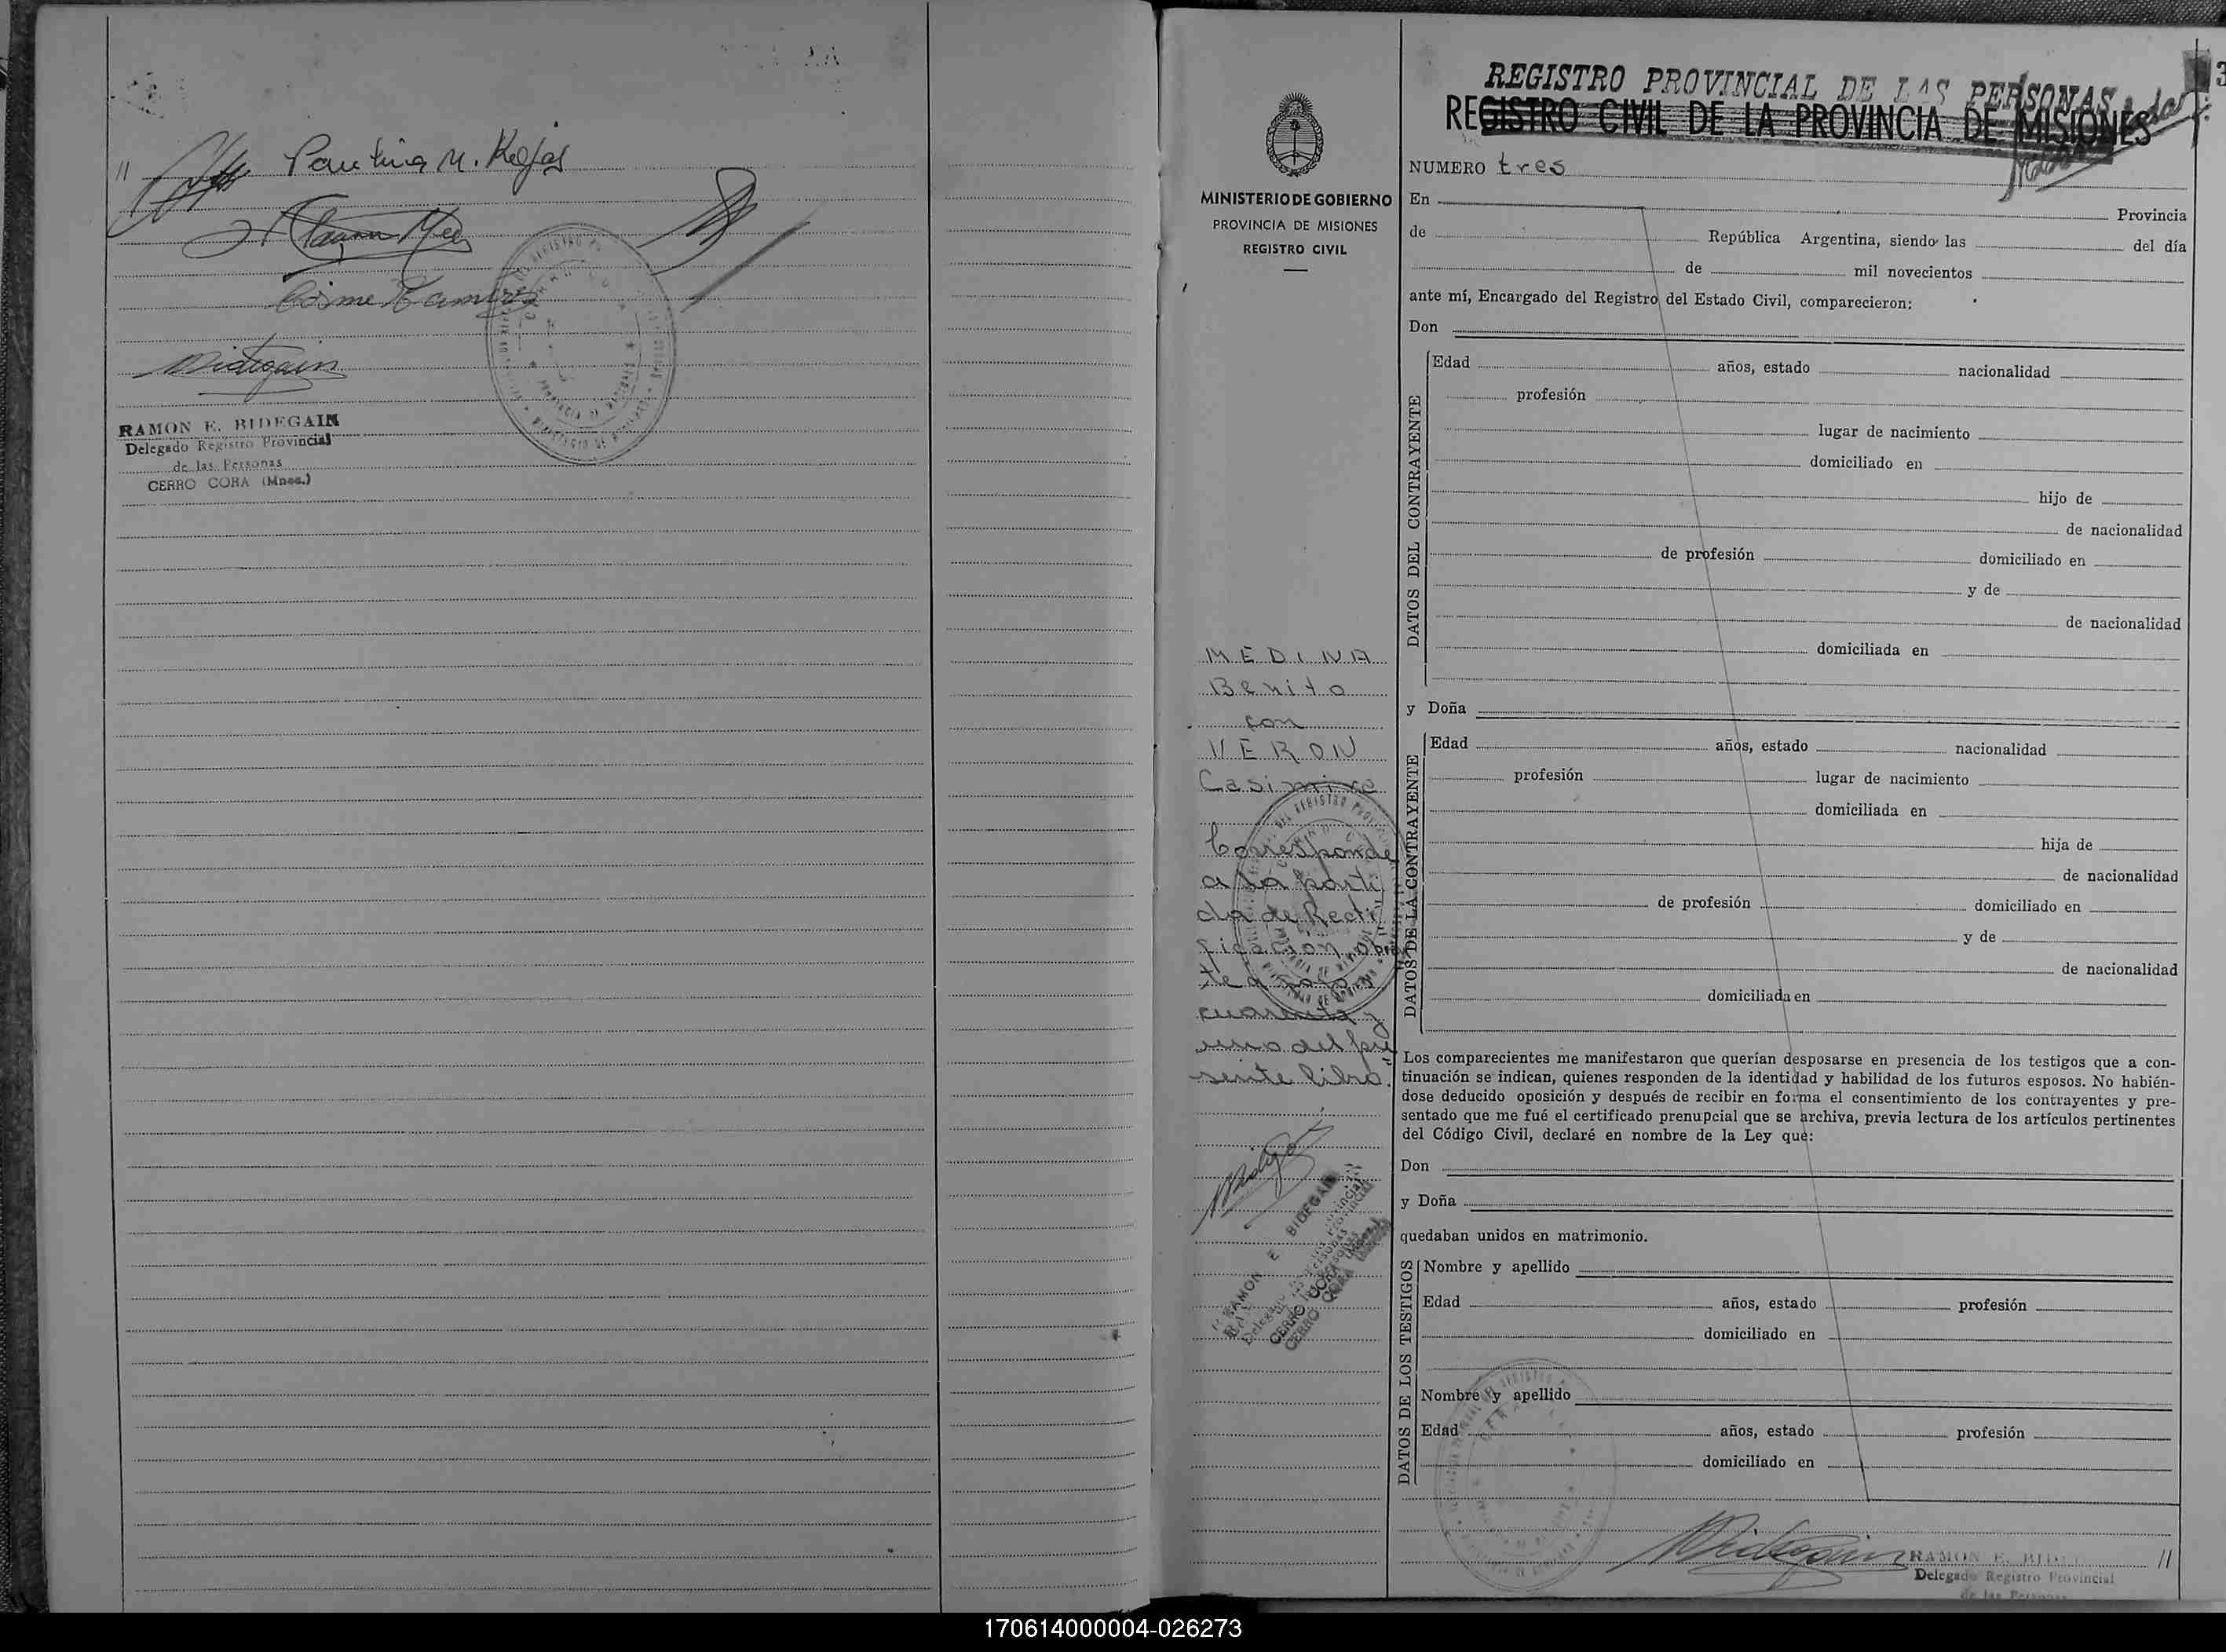 // Paulina M. Rojas
Cosme Ramirez
Bidegain
RAMON E. BIDEGAIN
Delegado Registro Provincial
de las Personas
CERRO CORA (Mnes.)
3
REGISTRO PROVINCIAL DE LAS PERSONAS
REGISTRO CIVIL DE LA PROVINCIA DE MISIONES
MINISTERIO DE GOBIERNO
PROVINCIA DE MISIONES
REGISTRO CIVIL
MEDINA
Benito
con
VERON
Casimira
Corresponde
a la parti
da de Recti"
ficación obran
te a folio
cuarenta y
uno del pre"
sente libro.
RAMON E BIDEGAIN
NUMERO tres
En Provincia
de República Argentina, siendo las del día
de mil novecientos
ante mí, Encargado del Registro del Estado Civil, comparecieron:
Don
DATOS DEL CONTRAYENTE
Edad años, estado nacionalidad
profesión
lugar de nacimiento
domiciliado en
hijo de
de nacionalidad
de profesión domiciliado en
y de
de nacionalidad
domiciliada en
y Doña
DATOS DE LA CONTRAYENTE
Edad años, estado nacionalidad
profesión lugar de nacimiento
domiciliada en
hija de
de nacionalidad
de profesión domiciliado en
y de
de nacionalidad
domiciliada en
Los comparecientes me manifestaron que querían desposarse en presencia de los testigos que a con-
tinuación se indican, quienes responden de la identidad y habilidad de los futuros esposos. No habién-
dose deducido oposición y después de recibir en forma el consentimiento de los contrayentes y pre-
sentado que me fué el certificado prenupcial que se archiva, previa lectura de los artículos pertinentes
del Código Civil, declaré en nombre de la Ley que:
Don
y Doña
quedaban unidos en matrimonio.
DATOS DE LOS TESTIGOS
Nombre y apellido
Edad años, estado profesión
domiciliado en
Nombre y apellido
Edad años, estado profesión
domiciliado en
Bidegain RAMON E. BIDEGAIN //
Delegado Registro Provincial
de las Personas
170614000004-026273